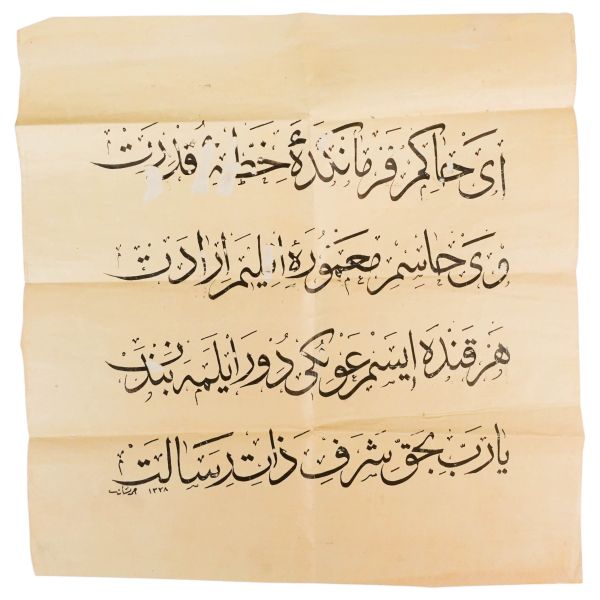 ای حاکم فرمانکندهٔ خطهٔ قدرت
وی حاسم معمورهٔ اقلیم ارادت
هر قنده ایسم عونکی دور ایلمه بندن
یا رب بحق شرف ذات رسالت
١٣٢٨